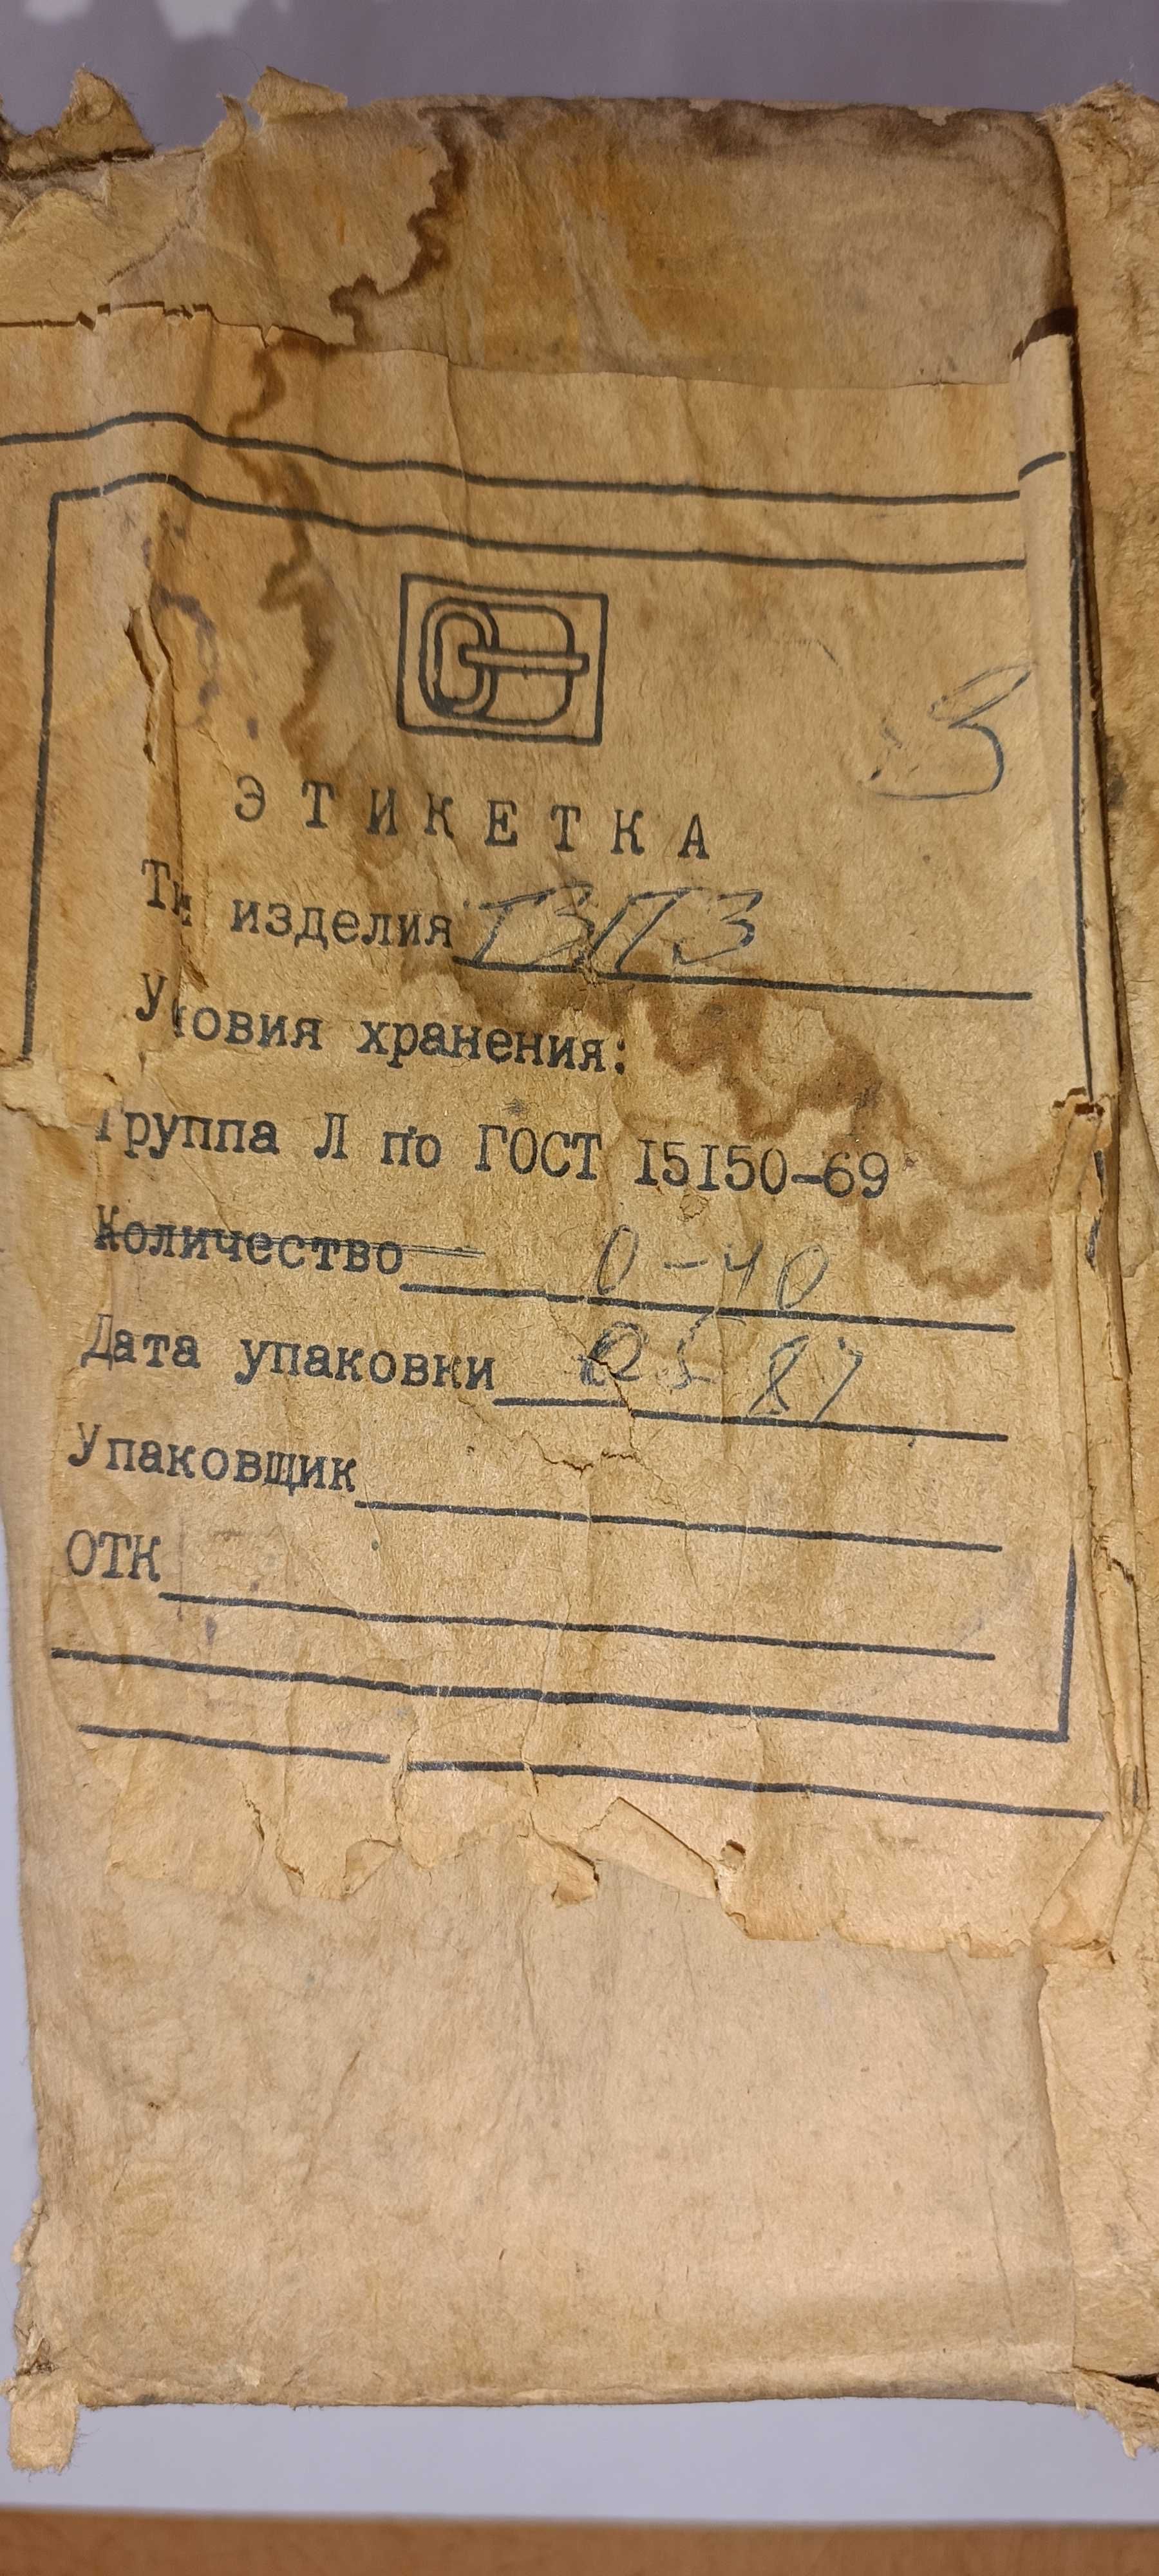 ЭТИКЕТКА
изделия ТВП 3
хранения:
Группа Л по ГОСТ 15150-69
Количество 0-40
Дата упаковки 05 87
Упаковщик
ОТК